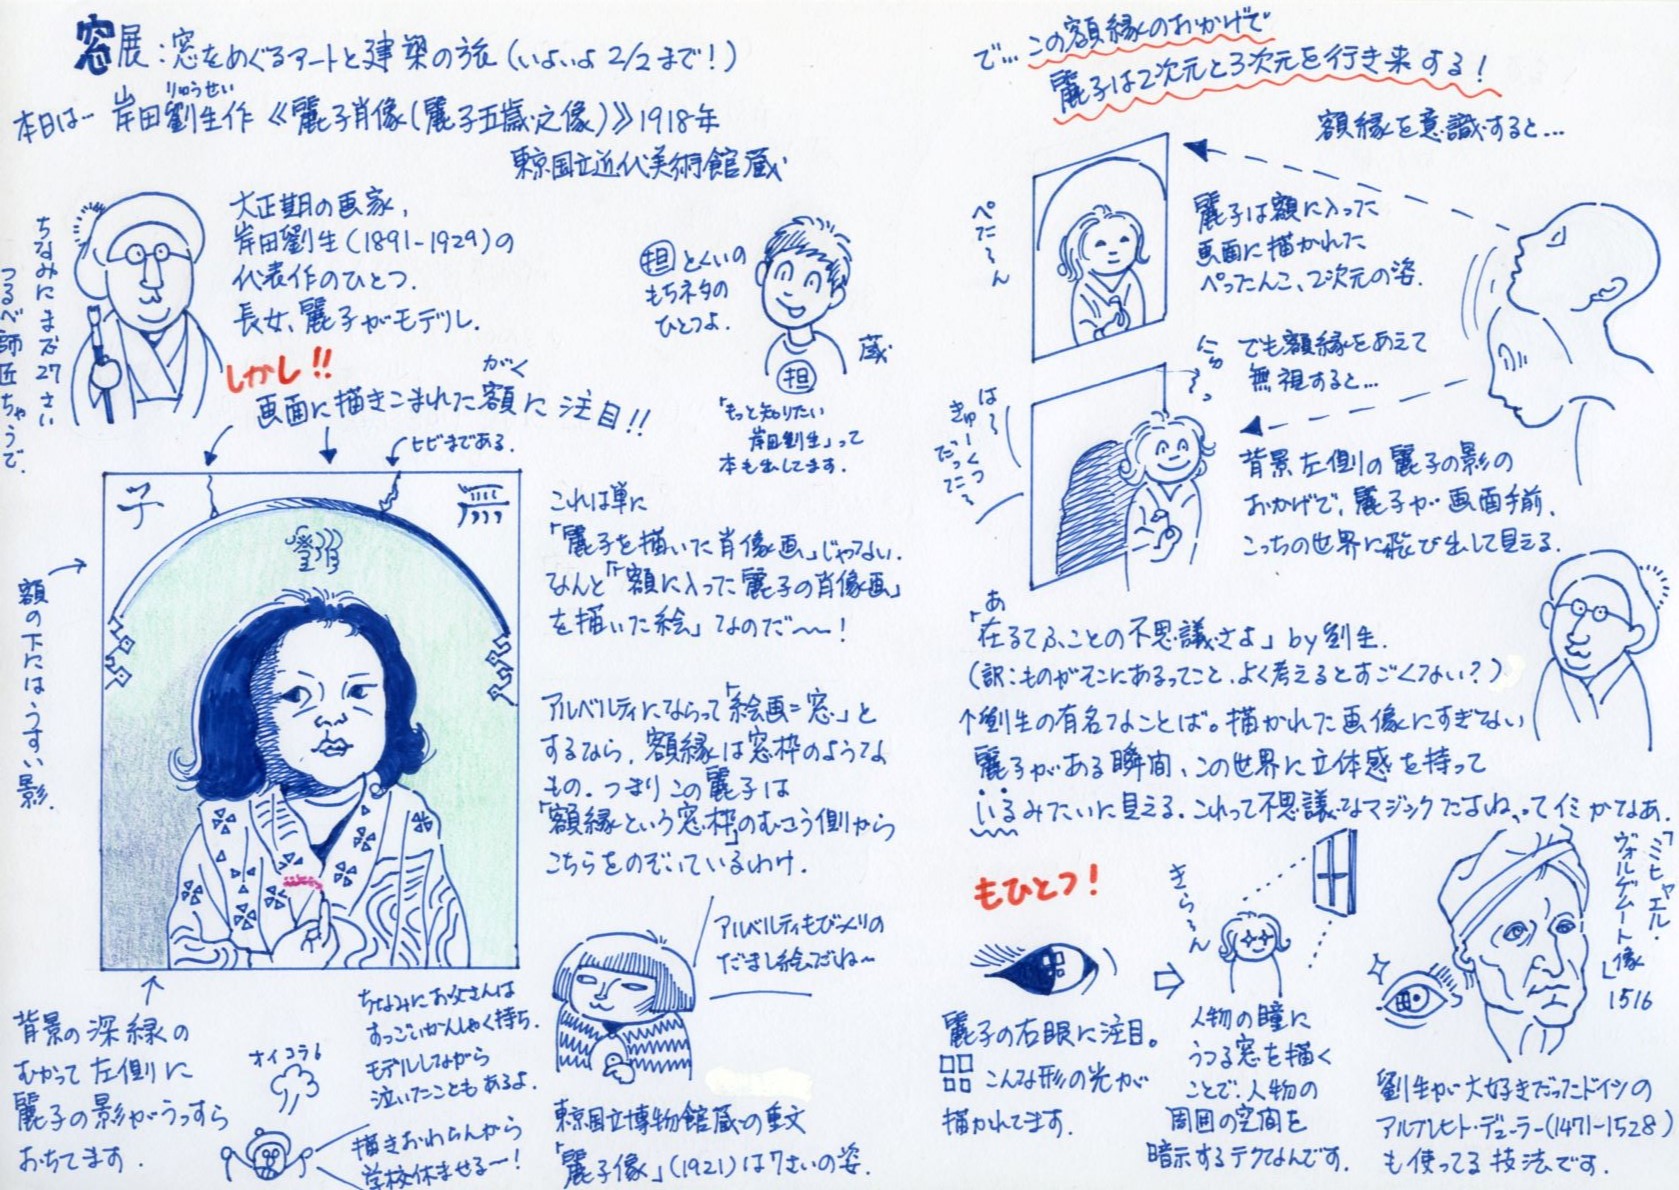 窓展：窓をめぐるアートと建築の旅（いよいよ2/2まで！）
本日は… 岸田劉生作《麗子肖像（麗子五歳之像）》1918年
りゅうせい
東京国立近代美術館蔵
ちなみにまだ27さい
つるべ師匠ちゃうで.
大正期の画家,
岸田劉生（1891-1929）の
代表作のひとつ.
長女、麗子がモデル.
担 とくいの
もちネタの
ひとつよ.
担
蔵
「もっと知りたい
岸田劉生」って
本も出してます.
しかし!!
がく
画面に描きこまれた額に注目!!
ヒビまである.
子
麗
額の下にはうすい影.
背景の深緑の
むかって左側に
麗子の影がうっすら
おちてます.
これは単に
「麗子を描いた肖像画」じゃない.
なんと「「額に入った麗子の肖像画」
を描いた絵」なのだ〜〜！
アルベルティにならって「絵画=窓」と
するなら、額縁は窓枠のような
もの. つまりこの麗子は
「額縁という窓枠」のむこう側から
こちらをのぞいているわけ.
アルベルティもびっくりの
だまし絵だね〜
オイコラ！
ちなみにお父さんは
すっごいかんしゃく持ち.
モデルしながら
泣いたこともあるよ.
描きおわらんから
学校休ませる〜！
東京国立博物館蔵の重文
「麗子像」（1921）は7さいの姿.
で… この額縁のおかげで
麗子は2次元と3次元を行き来する！
額縁を意識すると…
ぺた〜ん
麗子は額に入った
画面に描かれた
ぺったんこ、2次元の姿.
でも額縁をあえて
無視すると…
にゅ〜っ
背景左側の麗子の影の
おかげで、麗子が画面手前、
こっちの世界に飛び出して見える.
あ
「在るてふことの不思議さよ」by劉生.
（訳：ものがそこにあるってこと、よく考えるとすごくない？）
↑劉生の有名なことば。描かれた画像にすぎない
麗子がある瞬間、この世界に立体感を持って
いるみたいに見える. これって不思議なマジックだよね、ってイミかなあ.
もひとつ！
麗子の右眼に注目。
こんな形の光が
描かれてます.
きら〜ん
人物の瞳に
うつる窓を描く
ことで、人物の
周囲の空間を
暗示するテクなんです.
「ミヒャエル・
ヴォルゲムート像」
1516
劉生が大好きだったドイツの
アルブレヒト・デューラー（1471-1528）
も使ってる技法です.